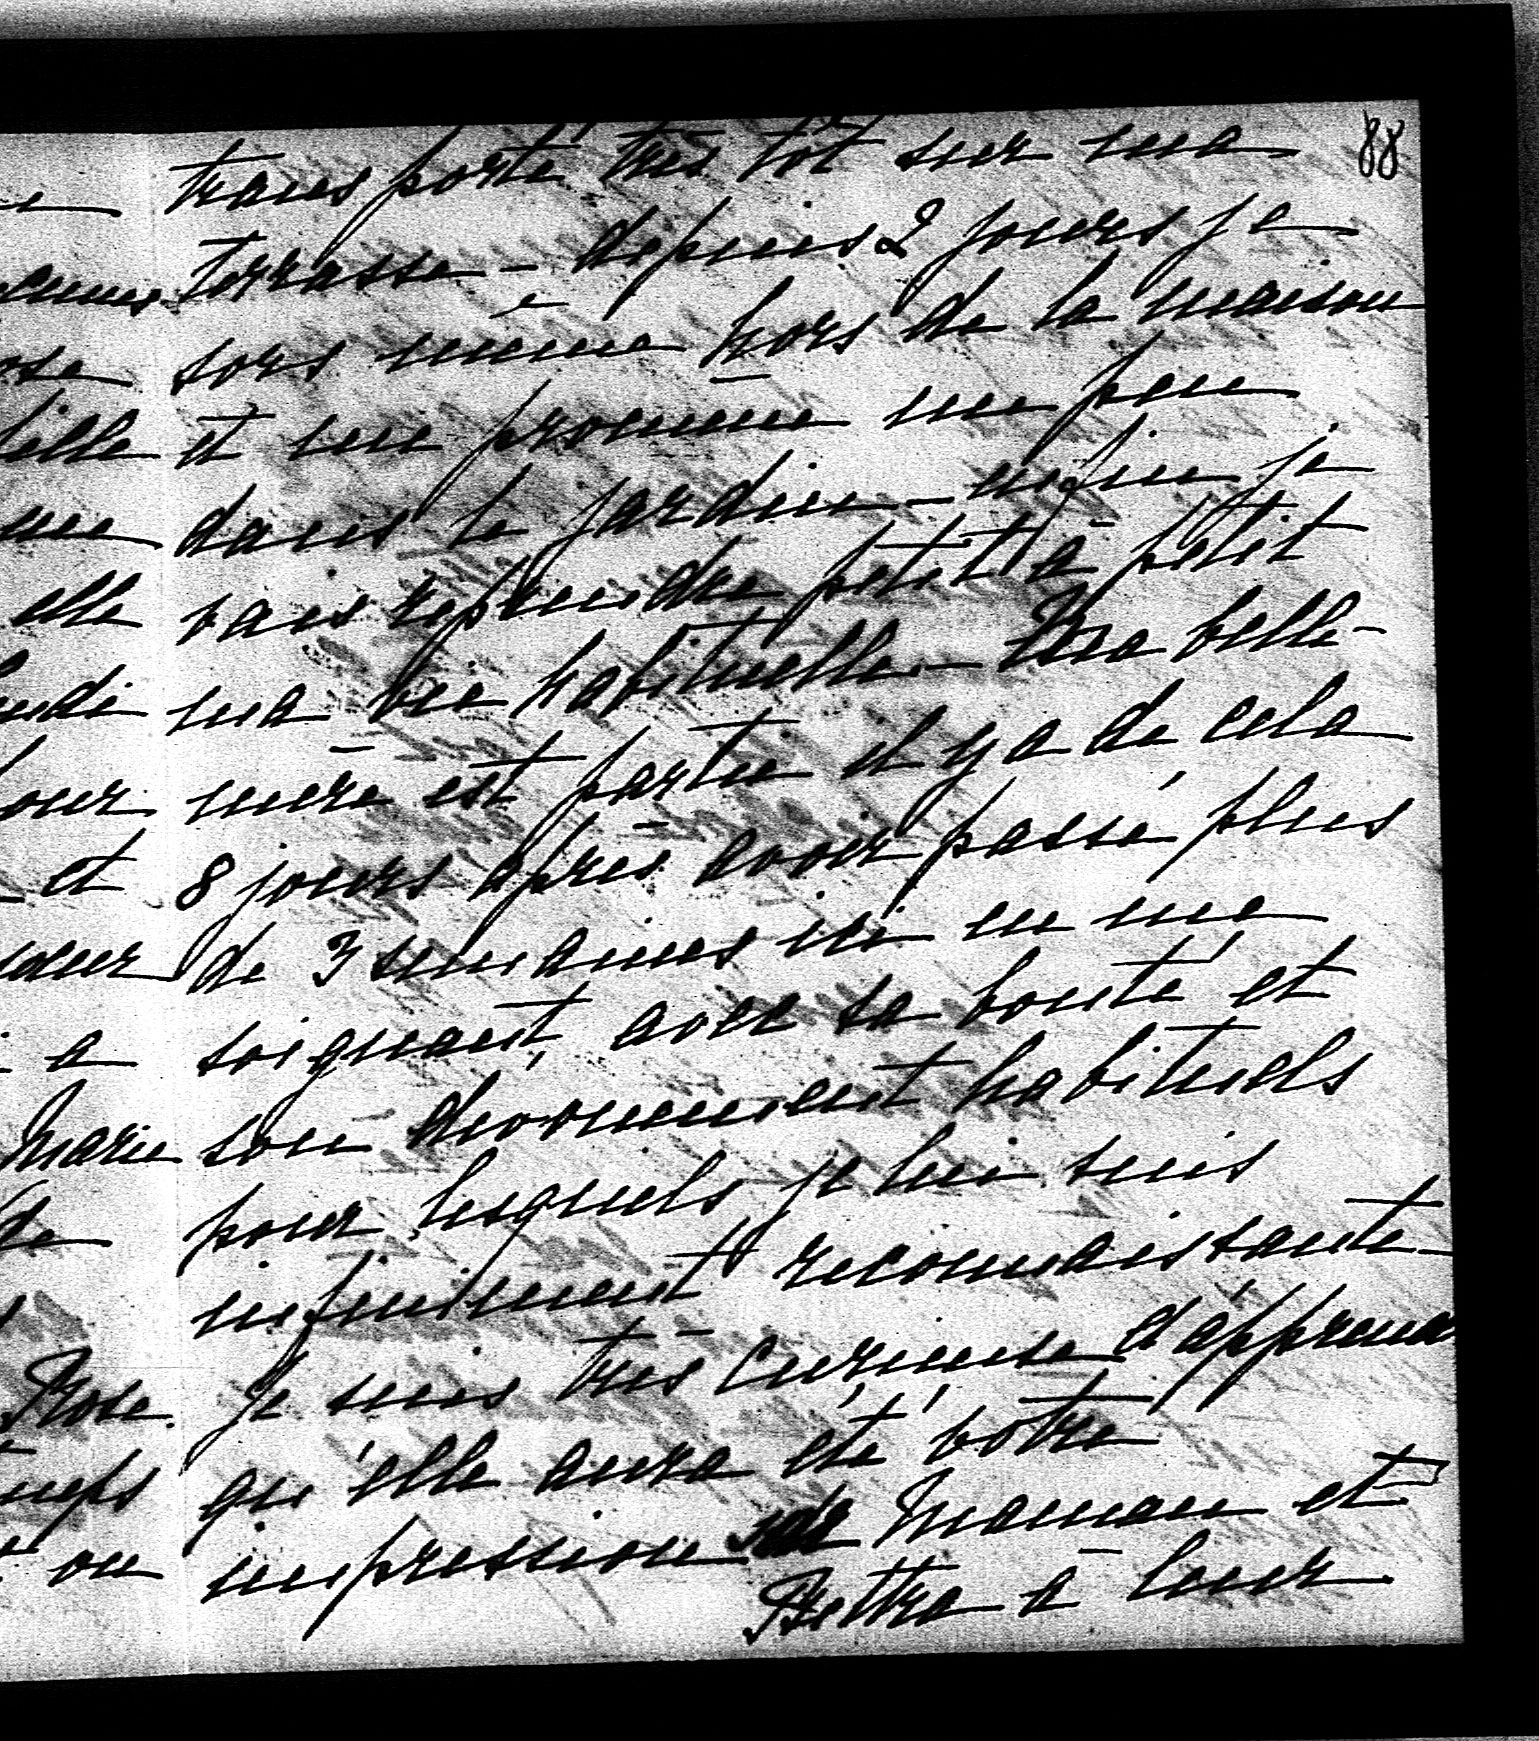 88
transporté très tôt sur ma
terrasse – depuis 2 jours je
sors même hors de la maison
et me promène un peu
dans le jardin – enfin je
vais reprendre petit à petit
ma vie habituelle – Ma belle-
mère est partie il y a de cela
8 jours après avoir passé plus
de 3 semaines ici en me
soignant, avec sa bonté et
son dévouement habituels
pour lesquels je lui suis
infiniment reconnaissante
Je suis très curieuse d'apprend
qu'elle aura été votre
impression de Maman et
à leur
ose
elle
et
a
Marie
de
Rose.
ou